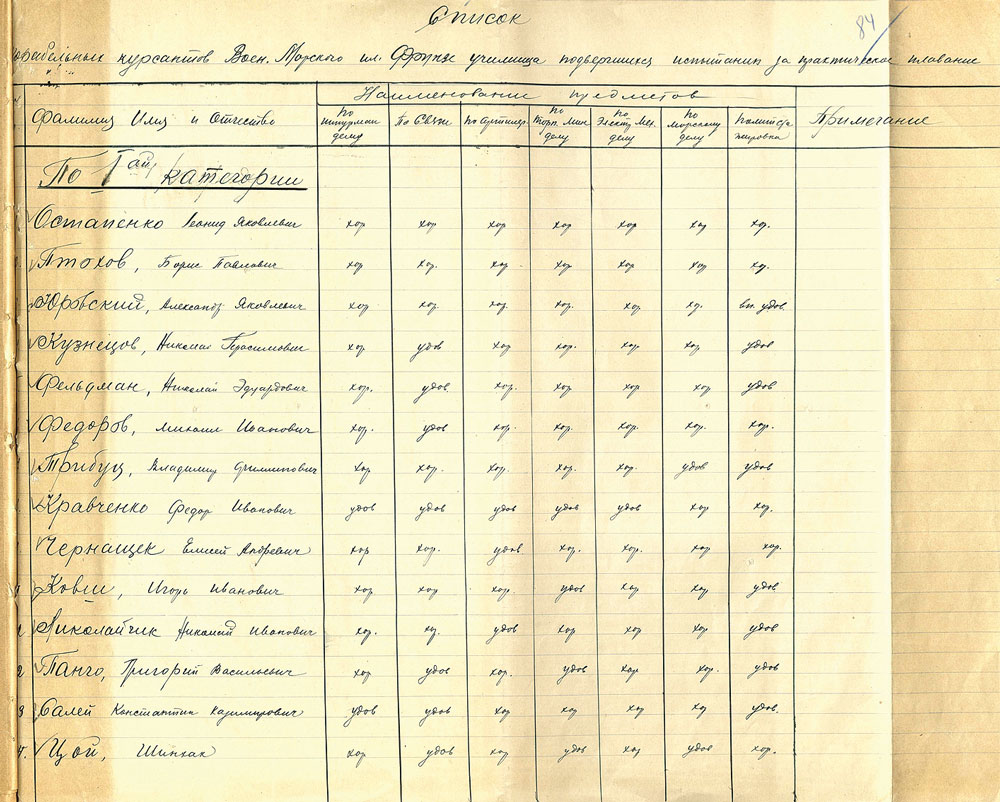 Список
84
корабельных курсантов Воен. Морского им. Фрунзе училища подвергшихся испытанию за практическое плавание
Наименование предметов
Фамилия Имя и Отчество По штурман делу По Связи По Артиллер. По Торп. Мин делу По Электр Мех. делу По Морскому делу Политса жировка Примечание
По Iай категории
Остапенко Леонид Яковлевич хор хор хор хор хор хор хор.
Птохов, Борис Павлович хор хор. хор. хор хор хор хор.
Юровский, Александр Яковлевич хор хор. хор. хор. хор. хор. вп. удов
Кузнецов, Николай Герасимович хор удов хор хор. хор хор удов
Фельдман, Николай Эдуардович хор. удов хор. хор хор хор удов
Федоров, Михаил Иванович хор. удов хор. хор. хор. хор. хор.
Трибуц, Владимир Филиппович хор хор. хор. хор. хор. удов удов
Кравченко Федор Иванович удов удов удов удов удов хор хор.
Чернащек Елисей Андреевич хор хор. удов хор. хор. хор хор.
Ковш, Игорь Иванович хор хор хор. удов хор хор удов
Николайчик Николай Иванович хор. хор. удов хор хор хор удов
2 Панго, Григорий Васильевич хор удов хор. удов хор хор. удов
3 Салей Константин Казимирович удов удов хор хор хор хор удов.
4. Цой, Шинхак хор удов хор удов хор удов хор.